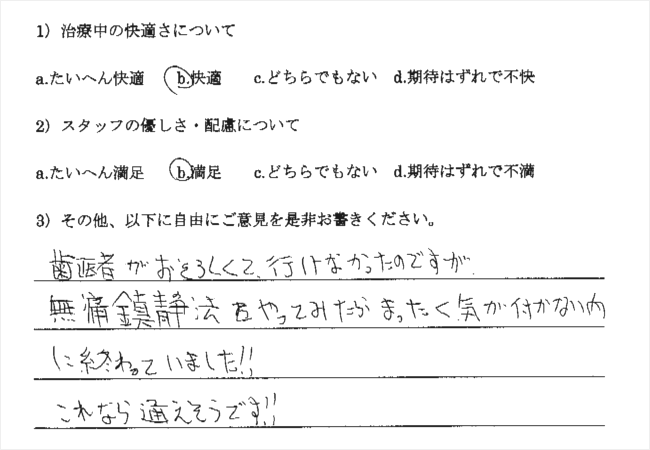 1）治療中の快適さについて
a.たいへん快適 b.快適 c.どちらでもない d.期待はずれで不快
2）スタッフの優しさ・配慮について
a.たいへん満足 b.満足 c.どちらでもない d.期待はずれで不満
3）その他、以下に自由にご意見を是非お書きください。
歯医者がおそろしくて、行けなかったのですが、
無痛鎮静法をやってみたらまったく気が付かない内
に終わっていました!!
これなら通えそうです!!